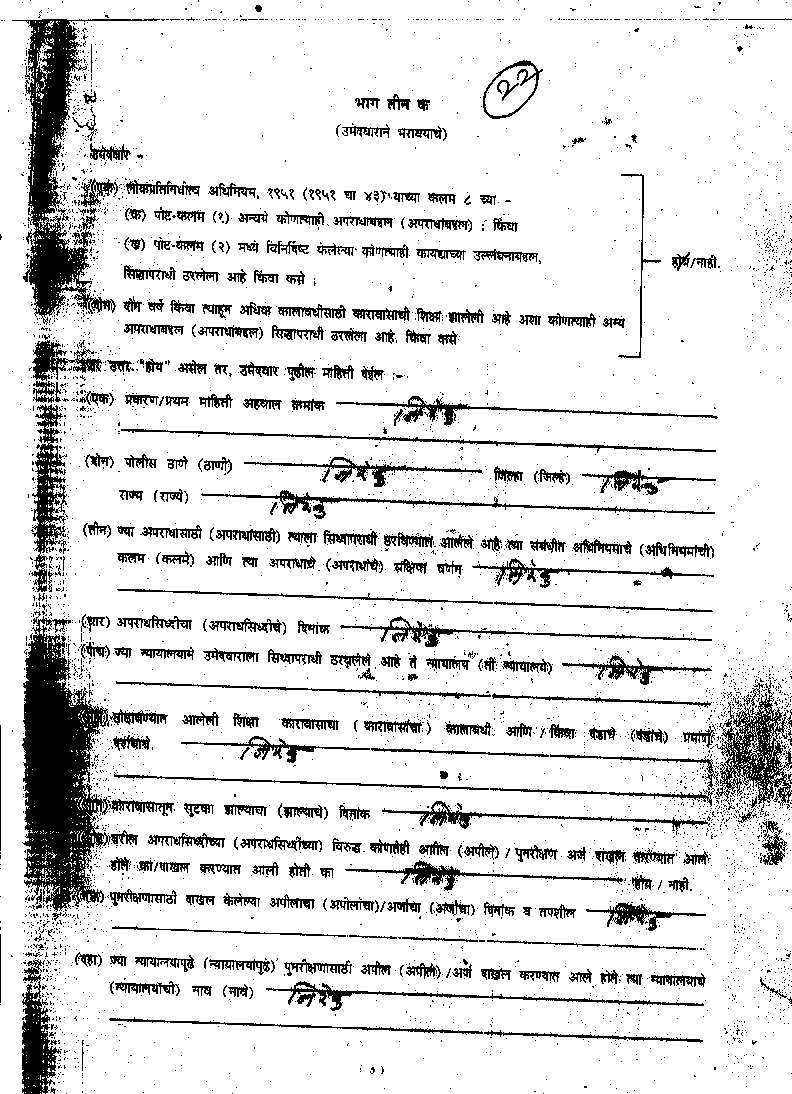 22
भाग तीन क
(उमेदवाराने भरावयाचे)
उमेदवार -
(एक) लोकप्रतिनिधीत्व अधिनियम, १९५१ (१९५१ चा ४३) याच्या कलम ८ च्या -
(क) पोट-कलम (१) अन्वये कोणत्याही अपराधाबद्दल (अपराधांबद्दल) ; किंवा
(ख) पोट-कलम (२) मध्ये विनिर्दिष्ट केलेल्या कोणत्याही कायद्याच्या उल्लंघनाबद्दल,
होय/नाही.
सिद्धापराधी ठरलेला आहे किंवा कसे ;
(दोन) दोन वर्षे किंवा त्याहून अधिक कालावधीसाठी कारावासाची शिक्षा झालेली आहे अशा कोणत्याही अन्य
अपराधाबद्दल (अपराधांबद्दल) सिद्धापराधी ठरलेला आहे. किंवा कसे
जर उत्तर "होय" असेल तर, उमेदवार पुढील माहिती देईल :-
(एक) प्रकरण/प्रथम माहिती अहवाल क्रमांक निरंक
(दोन) पोलीस ठाणे (ठाणी) निरंक जिल्हा (जिल्हे) निरंक
राज्य (राज्ये) निरंक
(तीन) ज्या अपराधासाठी (अपराधांसाठी) त्याला सिध्दापराधी ठरविण्यात आलेले आहे त्या संबंधीत अधिनियमाचे (अधिनियमांची)
कलम (कलमे) आणि त्या अपराधाचे (अपराधांचे) संक्षिप्त वर्णन निरंक
(चार) अपराधसिध्दीचा (अपराधसिध्दीचे) दिनांक निरंक
(पाच) ज्या न्यायालयाने उमेदवाराला सिध्दापराधी ठरवलेले आहे ते न्यायालय (ती न्यायालये) निरंक
ठोठावण्यात आलेली शिक्षा कारावासाचा (कारावासांचा) कालावधी आणि / किंवा दंडाचे (दंडांचे) प्रमाण
दर्शवावे. निरंक
(सात) कारावासातून सुटका झाल्याचा (झाल्याचे) दिनांक निरंक
(आठ) वरील अपराधसिध्दीच्या (अपराधसिध्दींच्या) विरुद्ध कोणतेही अपील (अपीले) / पुनरीक्षण अर्ज दाखल करण्यात आले
होते का/दाखल करण्यात आली होती का निरंक होय / नाही.
(नऊ) पुनरीक्षणासाठी दाखल केलेल्या अपीलाचा (अपीलांचा)/अर्जाचा (अर्जांचा) दिनांक व तपशील निरंक
(दहा) ज्या न्यायालयापुढे (न्यायालयांपुढे) पुनरीक्षणासाठी अपील (अपीले) /अर्ज दाखल करण्यात आले होते त्या न्यायालयाचे
(न्यायालयांची) नाव (नावे) निरंक